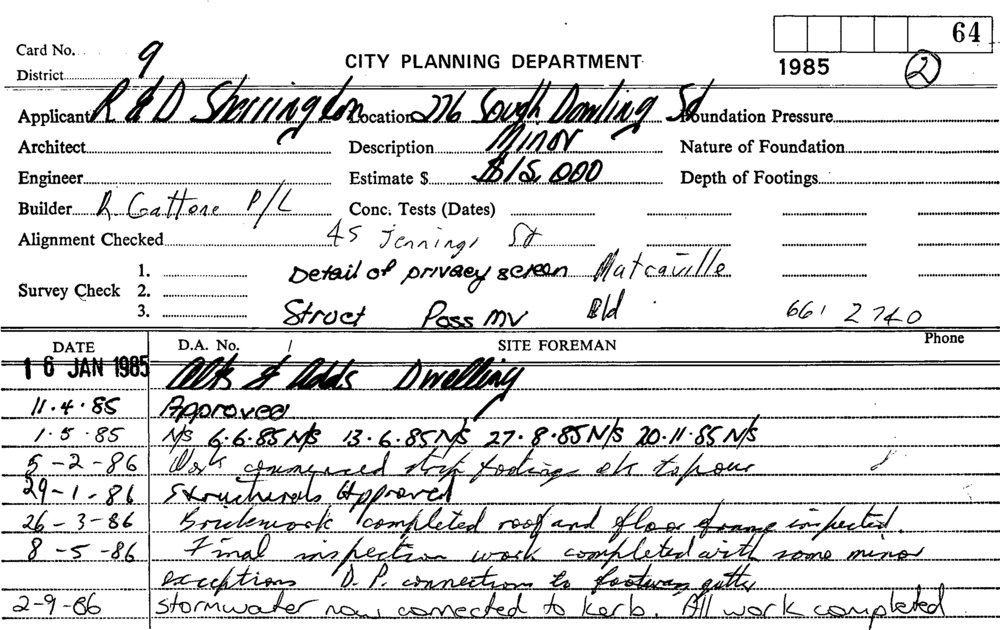 64
Card No. 9 CITY PLANNING DEPARTMENT 1985 2
District
Applicant R & D Sherringdon Location 276 South Dowling St Foundation Pressure
Architect Description Minor Nature of Foundation
Engineer Estimate $ $15,000 Depth of Footings
Builder R Gattone P/L Conc. Tests (Dates)
Alignment Checked 45 Jennings St
1. Detail of privacy screen Matraville
Survey Check 2.
3. Struct Pass MV Bld 661 2740
DATE D.A. No. SITE FOREMAN Phone
16 JAN 1985 Alts & Adds Dwelling
11.4.85 Approved
1.5.85 N/S 6.6.85 N/S 13.6.85 N/S 27.8.85 N/S 20.11.85 N/S
5-2-86 Work commenced strip footings ok to pour
29-1-86 Structurals Approved
26-3-86 Brickwork completed roof and floor frame inspected.
8-5-86 Final inspection work completed with some minor
exceptions D.P. connection to footway gutter
2-9-86 stormwater now connected to kerb. All work completed